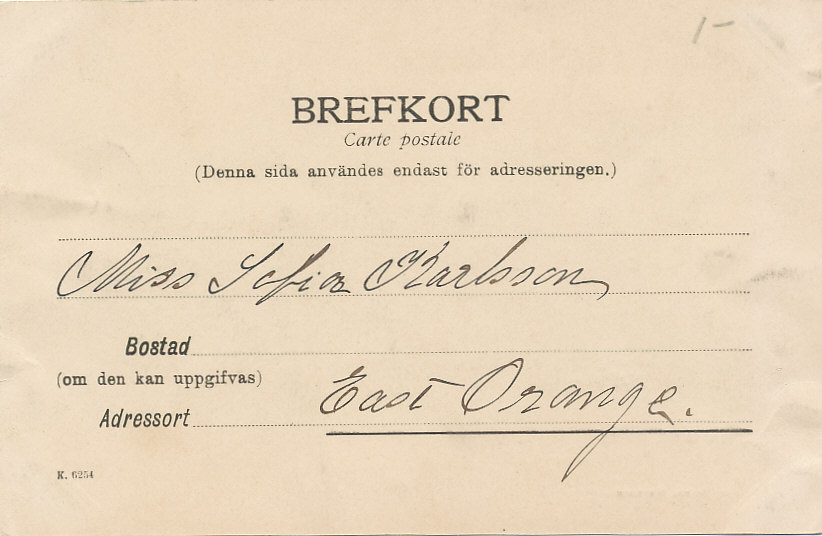 1-
BREFKORT
Carte postale
(Denna sida användes endast för adresseringen.)
Miss Sofia Karlsson
Bostad
(om den kan uppgifvas)
East Orange.
Adressort
K. 6254